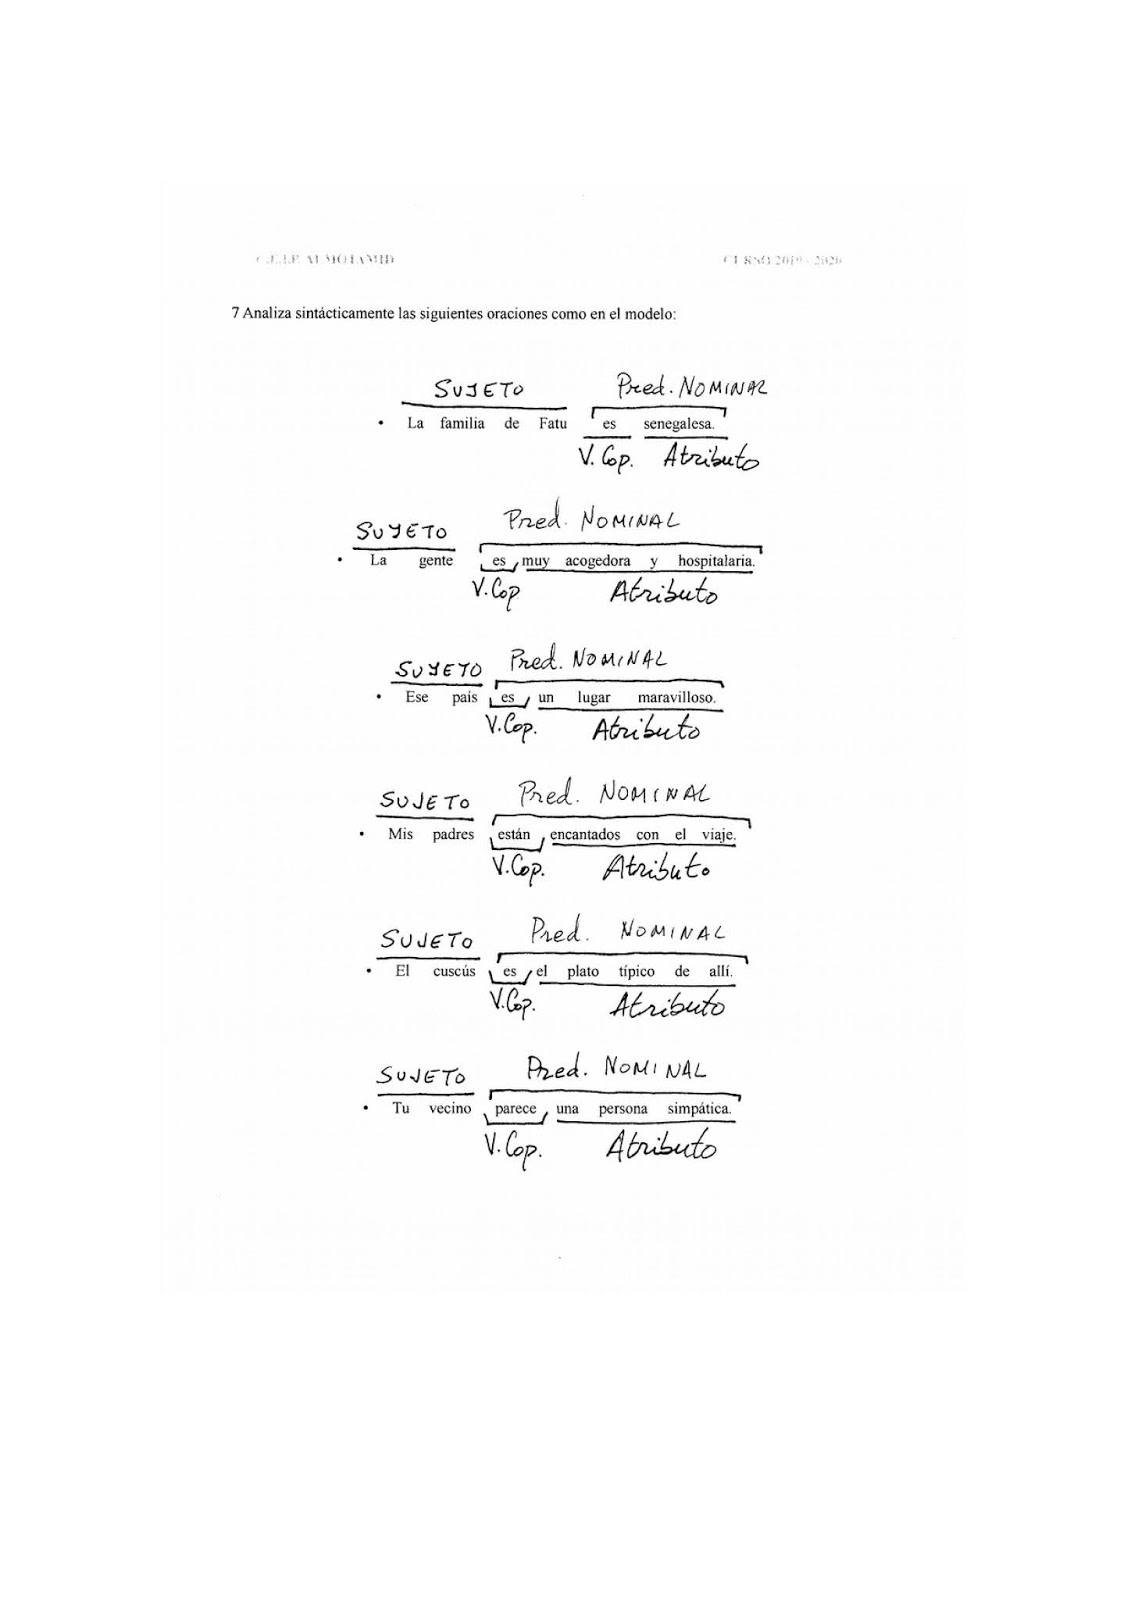 C.E.I.P. ALMOTAMID CURSO 2019 - 2020
7 Analiza sintácticamente las siguientes oraciones como en el modelo:
SUJETO Pred. NOMINAL
• La familia de Fatu es senegalesa.
V. Cop. Atributo
SUJETO Pred. NOMINAL
• La gente es muy acogedora y hospitalaria.
V. Cop Atributo
SUJETO Pred. NOMINAL
• Ese país es un lugar maravilloso.
V. Cop. Atributo
SUJETO Pred. NOMINAL
• Mis padres están encantados con el viaje.
V. Cop. Atributo
SUJETO Pred. NOMINAL
• El cuscús es el plato típico de allí.
V. Cop. Atributo
SUJETO Pred. NOMINAL
• Tu vecino parece una persona simpática.
V. Cop. Atributo